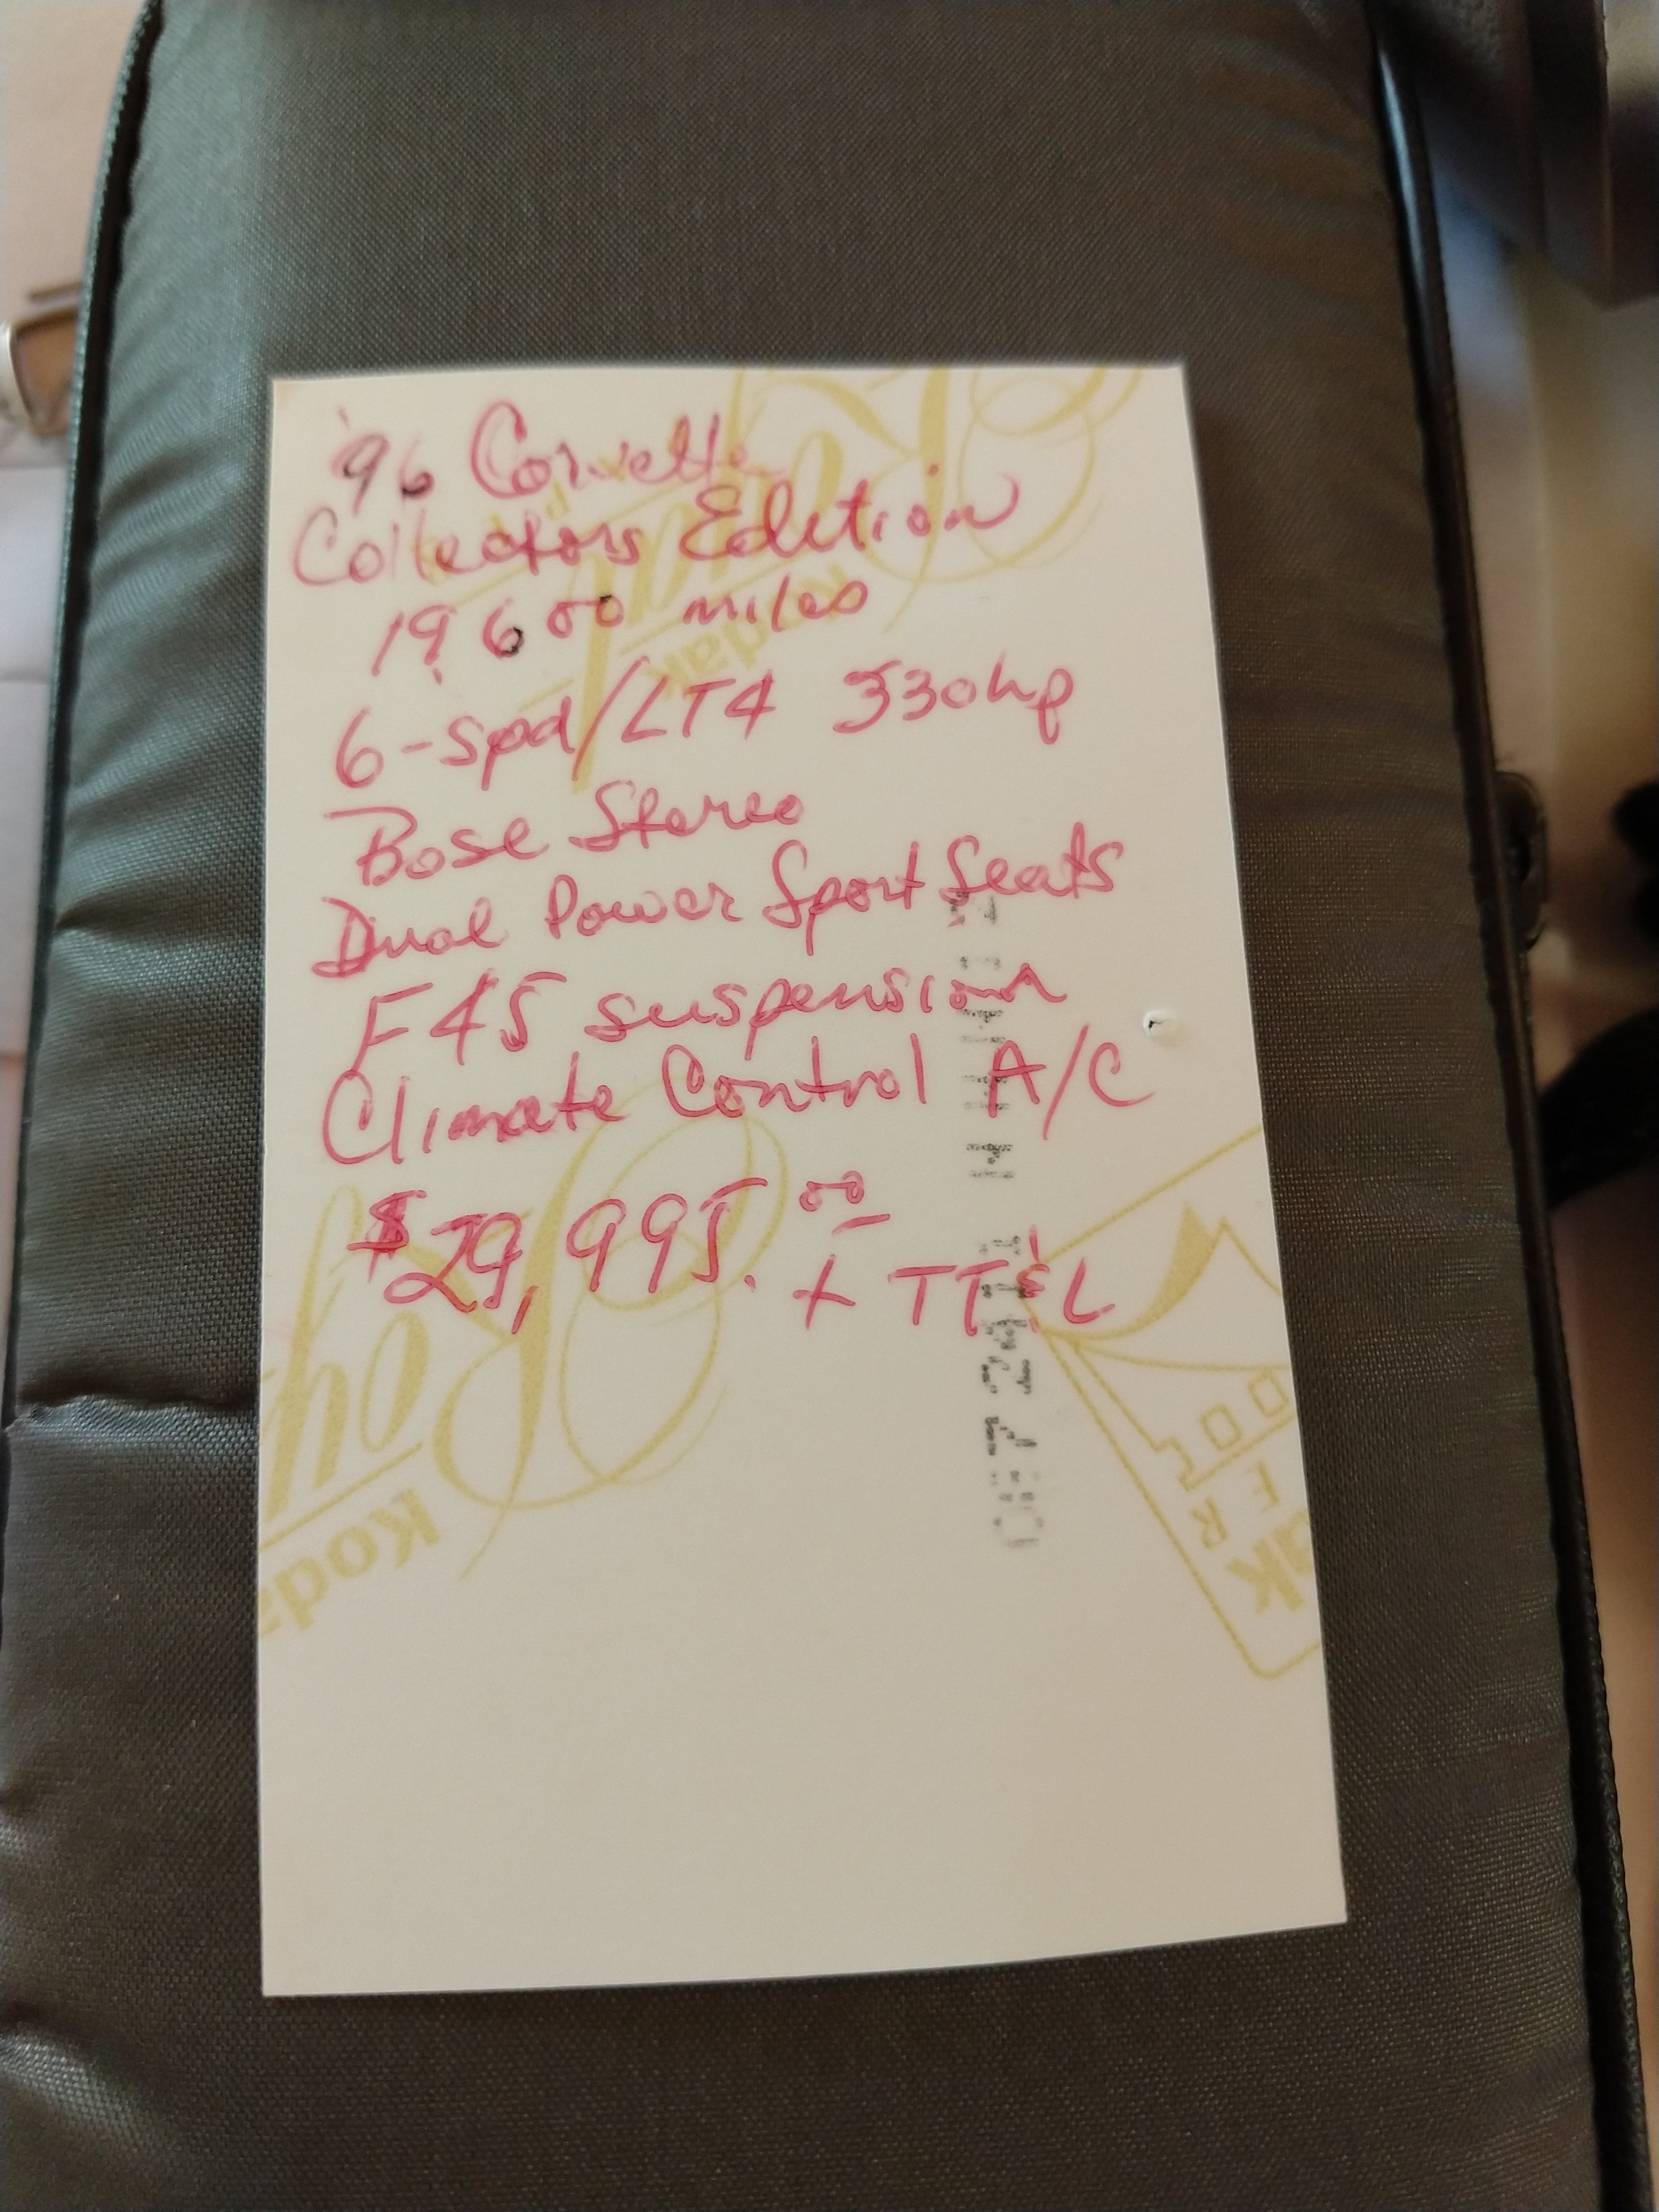 '96 Corvette
Collectors Edition
19,600 miles
6-spd/LT4 330hp
Bose Stereo
Dual Power Sport Seats
F45 suspension
Climate Control A/C
$29,995.00 + TT&L
Kodak
Royal
Kodak
Roy
Koda
ak